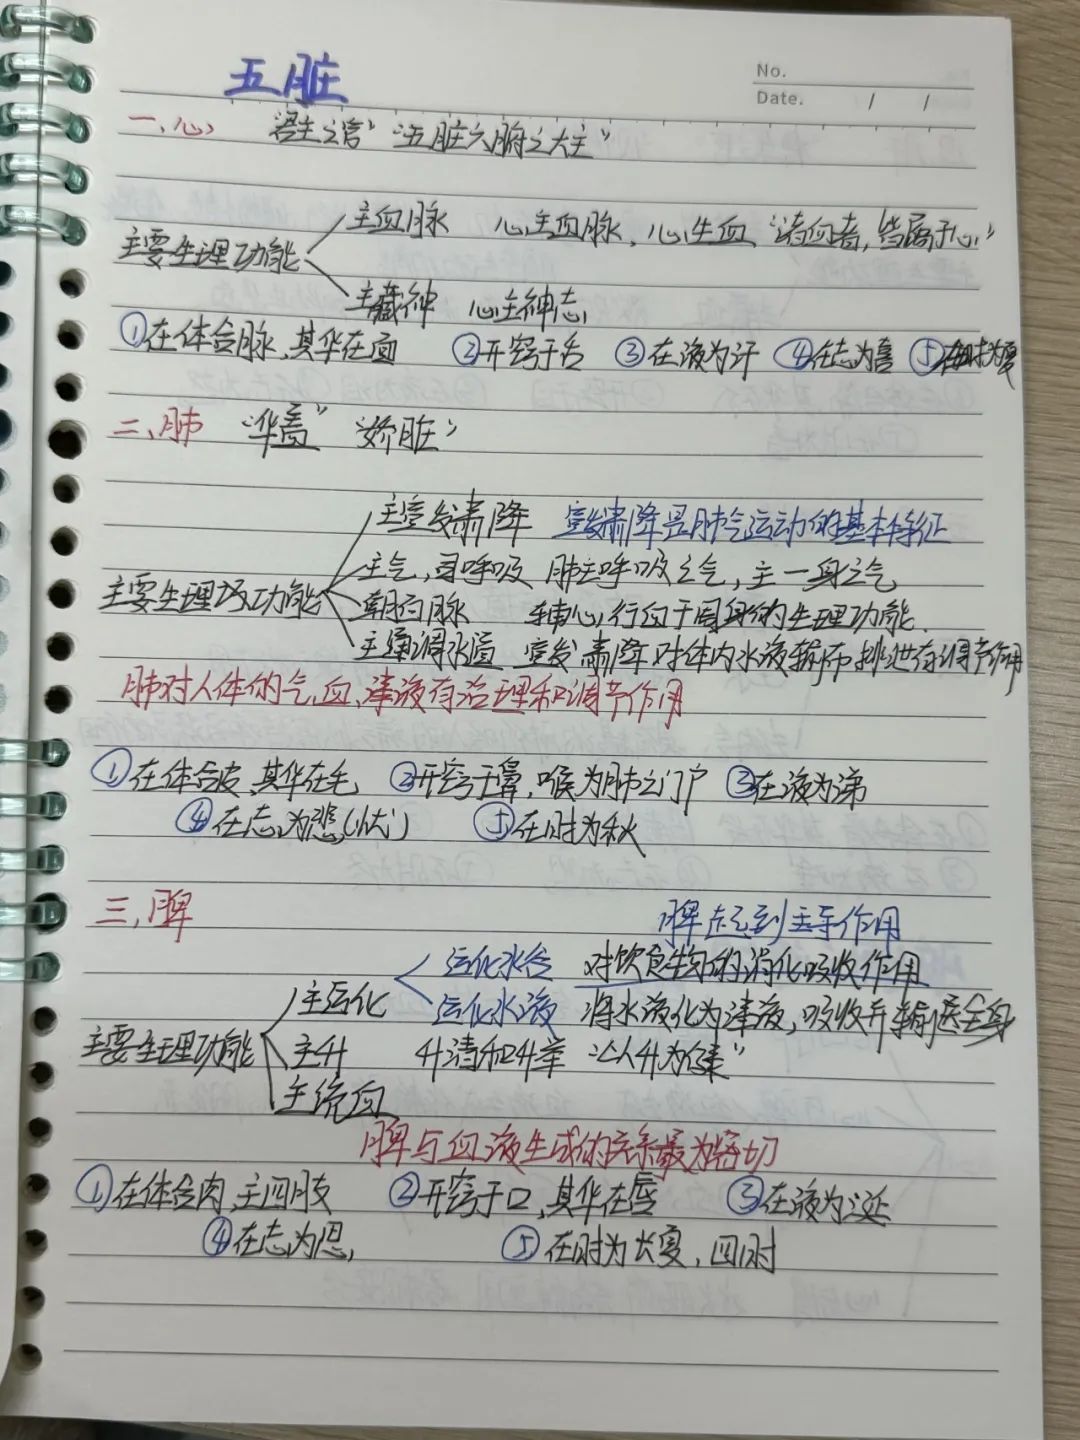 五脏
No.
Date. / /
一、心 君主之官” “五脏六腑之大主”
主血脉 心主血脉，心生血 “诸血者，皆属于心”
主要生理功能
主藏神 心主神志
①在体合脉，其华在面 ②开窍于舌 ③在液为汗 ④在志为喜 ⑤在时为夏
二、肺 “华盖” “娇脏”
主宣发肃降 宣发肃降是肺气运动的基本特征
主气，司呼吸 肺主呼吸之气，主一身之气
主要生理功能
朝百脉 辅心，行血于周身的生理功能
主通调水道 宣发肃降对体内水液输布排泄有调节作用
肺对人体的气，血，津液有治理和调节作用
①在体合皮，其华在毛 ②开窍于鼻，喉为肺之门户 ③在液为涕
④在志为悲(忧) ⑤在时为秋
三、脾
脾起到主导作用
运化水谷 对饮食物的消化吸收作用
主运化
运化水液 将水液化为津液，吸收并输送全身
主要生理功能 主升 升清和升举 “以升为健”
主统血
脾与血液生成的关系最为密切
①在体合肉，主四肢 ②开窍于口，其华在唇 ③在液为涎
④在志为思， ⑤在时为长夏，四时